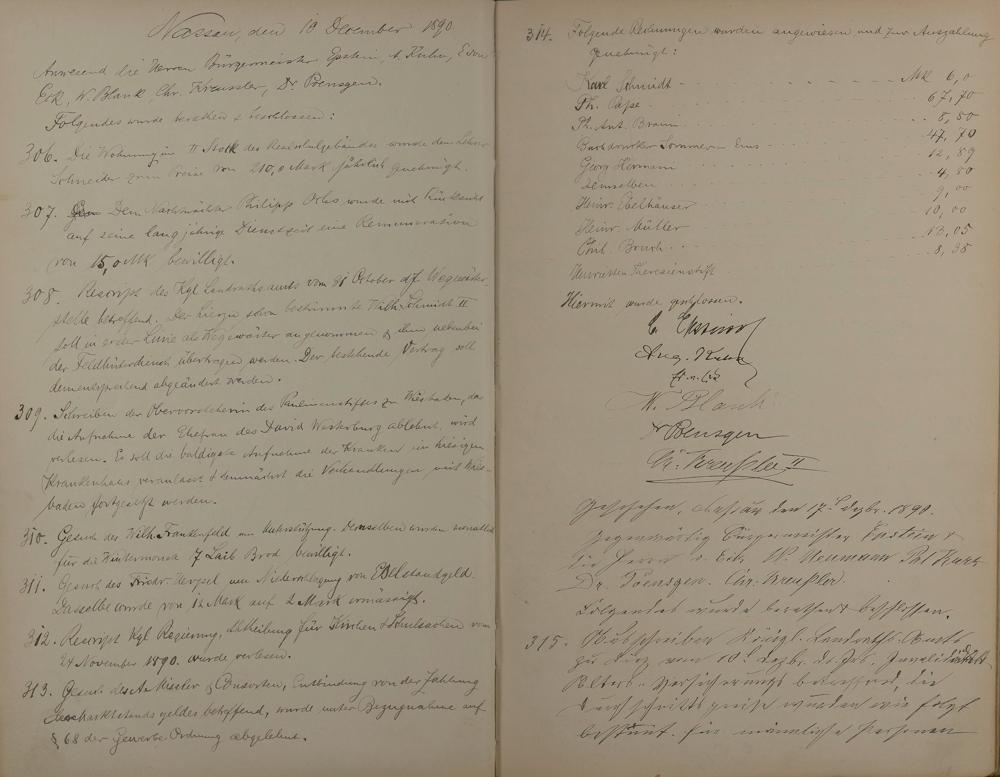 Nassau, den 10 December 1890.
Anwesend die Herren Bürgermeister Epstein, A. Kuhn, E. von
Eck, W. Blank, Chr. Kreussler, Dr. Poensgen.
Folgendes wurde berathen & beschlossen:
306. Die Wohnung im II Stock des Realschulgebäudes wurde dem Lehrer
Schneider zum Preise von 210,0 Mark jährlich genehmigt.
307. Dem Nachtwächter Philipp wurde mit Rücksicht
auf seine langjährige Dienstzeit eine Remuneration
von 15,0 Mk bewilligt.
308. Rescript des Kgl Landrathsamts vom 31 October d.J. Wegewärter-
stelle betreffend. Der hierzu schon bestimmte Wilh. Schmidt II
soll in erster Linie als Wegewärter angenommen & ihm nebenbei
der Feldhüterdienst übertragen werden. Der bestehende Vertrag soll
dementsprechend abgeändert werden.
309. Schreiben der Obervorsteherin des Paulinenstiftes zu Wiesbaden, da
die Aufnahme der Ehefrau des David Westerburg ablehnt, wird
verlesen. Es soll die baldigste Aufnahme der Kranken im hiesigen
Krankenhaus veranlasst & demnächst die Verhandlungen mit Wies-
baden fortgesetzt werden.
310. Gesuch des Wilh. Frankenfeld um Unterstützung. Demselben wurden monatlich
für die Wintermonate 7 Laib Brod bewilligt.
311. Gesuch des Friedr. um Niederschlagung von Standgeld.
Dasselbe wurde von 12 Mark auf 2 Mark ermässigt.
312. Rescript Kgl Regierung, Abtheilung für Kirchen & Schulsachen vom
24 November 1890. wurde verlesen.
313. Gesuch des & Consorten, Entbindung von der Zahlung
Marktstandsgeldes betreffend, wurde unter Bezugnahme auf
§ 68 der Gewerbe Ordnung abgelehnt.
314. Folgende Rechnungen wurden angewiesen und zur Auszahlung
genehmigt:
Karl Schmidt - Mk 6,0
Ph. Pape 67,70
Ph. Ant. Braun 8,80
Buchdrucker Sommer in Ems 47,70
Georg Hermann 12,89
Demselben 4,80
Heinr. Ebelhäuser 9,00
Heinr. Müller 10,00
Chrl. Bruch 13,05
Henrietten Theresienstift 8,35
Hiermit wurde geschlossen.
C Epstein
Aug. Kuhn
W. Blank
Dr Poensgen
Chr. Kreußler II
Geschehen, Nassau den 17. Dezbr. 1890.
Gegenwärtig Bürgermeister Epstein &
die Herren v. Eck, W. Neumann,
Dr. Poensgen. Chr. Kreußler.
Folgendes wurde berathen & beschlossen.
315. Auf Schreiben Königl. Landraths-Amts
zu vom 10. Dezbr. d. Js. Invaliditäts-
Alters-Versicherung betreffend, die
Durchschnittspreise wurden wie folgt
bestimmt. für männliche Personen